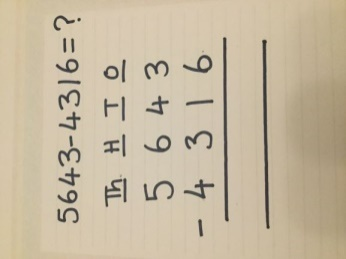 5643-4316=?
Th H T O
5 6 4 3
- 4 3 1 6